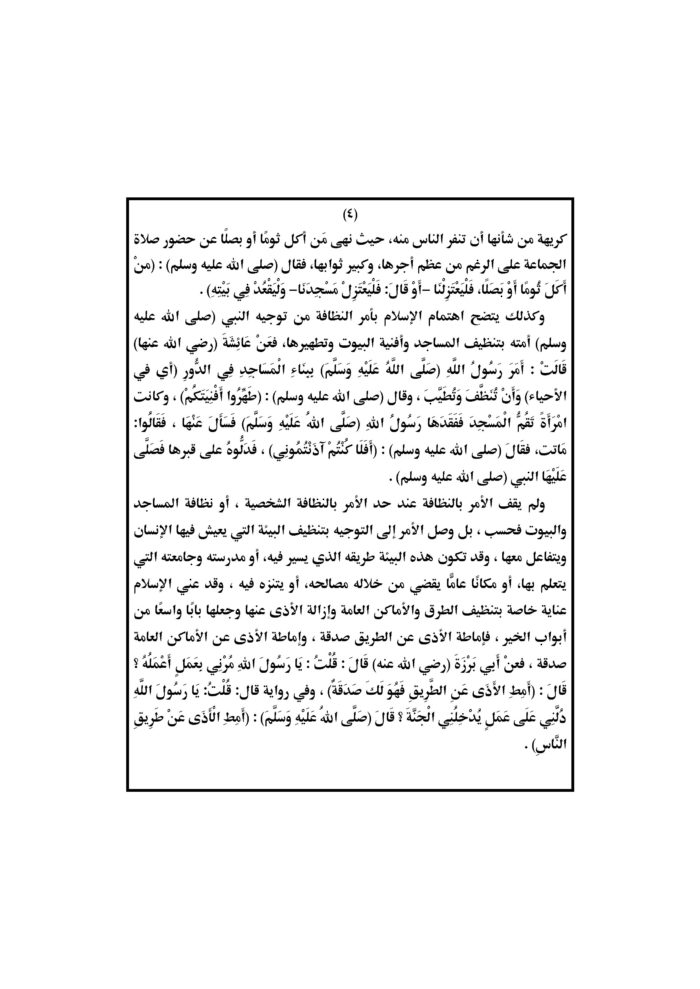 (٤)
كريهة من شأنها أن تنفر الناس منه، حيث نهى مَن أكل ثومًا أو بصلًا عن حضور صلاة
الجماعة على الرغم من عظم أجرها، وكبير ثوابها، فقال (صلى الله عليه وسلم) : (منْ
أَكَلَ ثُومًا أَوْ بَصَلًا، فَلْيَعْتَزِلْنَا –أَوْ قَالَ: فَلْيَعْتَزِلْ مَسْجِدَنَا– وَلْيَقْعُدْ فِي بَيْتِهِ) .
وكذلك يتضح اهتمام الإسلام بأمر النظافة من توجيه النبي (صلى الله عليه
وسلم) أمته بتنظيف المساجد وأفنية البيوت وتطهيرها، فعَنْ عَائِشَةَ (رضي الله عنها)
قَالَتْ : أَمَرَ رَسُولُ اللَّهِ (صَلَّى اللَّهُ عَلَيْهِ وَسَلَّمَ) بِبِنَاءِ الْمَسَاجِدِ فِي الدُّورِ (أي في
الأحياء) وَأَنْ تُنَظَّفَ وَتُطَيَّبَ ، وقال (صلى الله عليه وسلم) : (طَهِّرُوا أَفْنِيَتَكُمْ) ، وكانت
امْرَأَةً تَقُمُّ الْمَسْجِدَ فَفَقَدَهَا رَسُولُ اللهِ (صَلَّى اللهُ عَلَيْهِ وَسَلَّمَ) فَسَأَلَ عَنْهَا ، فَقَالُوا:
مَاتت، فقَالَ (صلى الله عليه وسلم) : (أَفَلَا كُنْتُمْ آذَنْتُمُونِي) ، فَدَلُّوهُ على قبرها فَصَلَّى
عَلَيْهَا النبي (صلى الله عليه وسلم) .
ولم يقف الأمر بالنظافة عند حد الأمر بالنظافة الشخصية ، أو نظافة المساجد
والبيوت فحسب ، بل وصل الأمر إلى التوجيه بتنظيف البيئة التي يعيش فيها الإنسان
ويتفاعل معها ، وقد تكون هذه البيئة طريقه الذي يسير فيه، أو مدرسته وجامعته التي
يتعلم بها، أو مكانًا عامًّا يقضي من خلاله مصالحه، أو يتنزه فيه ، وقد عني الإسلام
عناية خاصة بتنظيف الطرق والأماكن العامة وإزالة الأذى عنها وجعلها بابًا واسعًا من
أبواب الخير ، فإماطة الأذى عن الطريق صدقة ، وإماطة الأذى عن الأماكن العامة
صدقة ، فعنْ أَبِي بَرْزَةَ (رضي الله عنه) قَالَ : قُلْتُ : يَا رَسُولَ اللهِ مُرْنِي بِعَمَلٍ أَعْمَلُهُ ؟
قَالَ : (أَمِطِ الأَذَى عَنِ الطَّرِيقِ فَهُوَ لَكَ صَدَقَةٌ) ، وفي رواية قال: قُلْتُ: يَا رَسُولَ اللَّهِ
دُلَّنِي عَلَى عَمَلٍ يُدْخِلُنِي الْجَنَّةَ ؟ قَالَ (صَلَّى اللهُ عَلَيْهِ وَسَلَّمَ) : (أَمِطِ الْأَذَى عَنْ طَرِيقِ
النَّاسِ) .